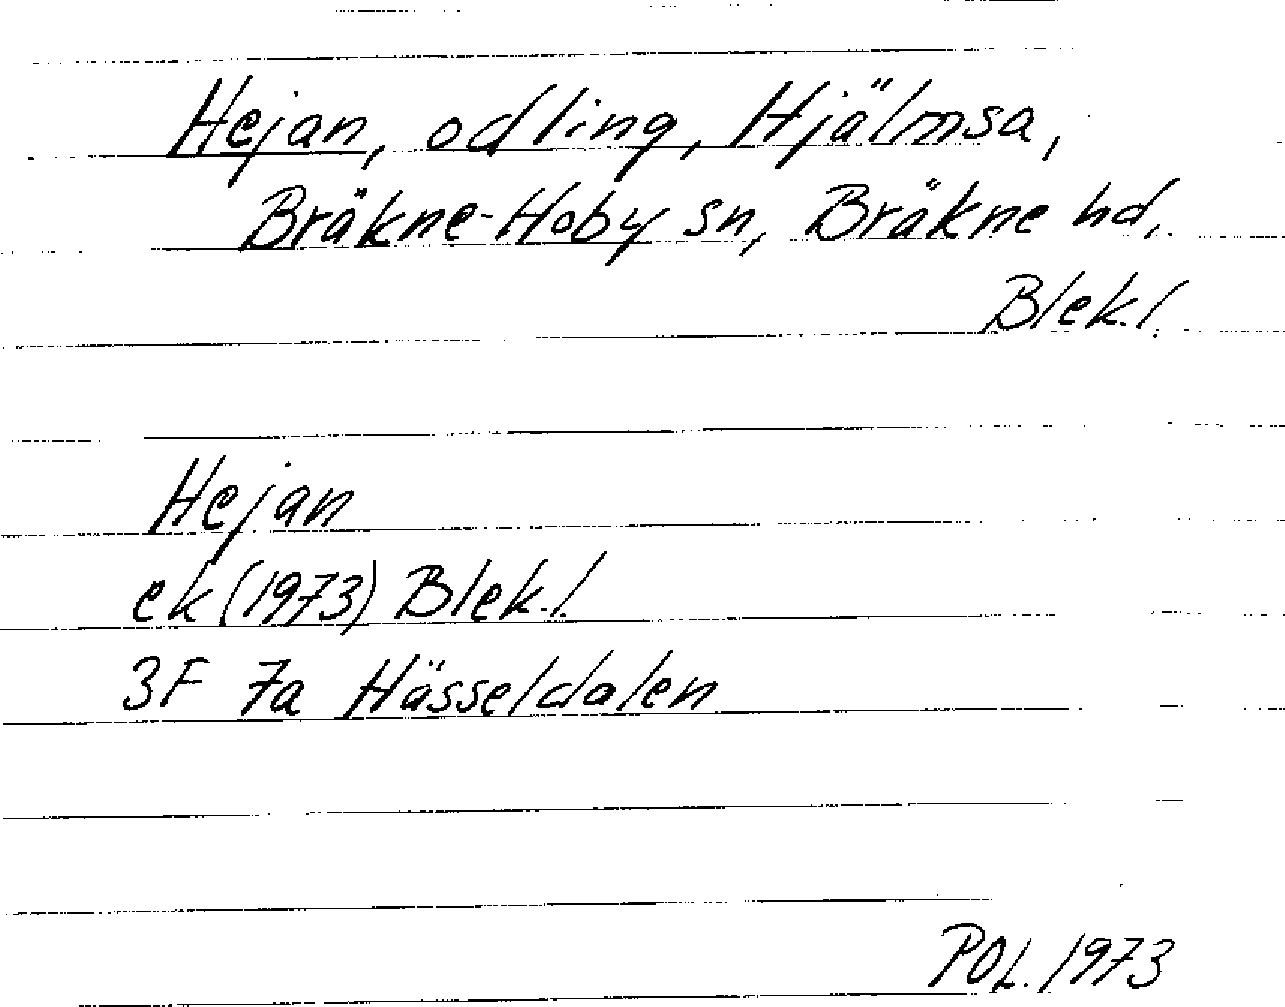 Hejan, odling, Hjälmsa,
Bräkne-Hoby sn, Bräkne hd,
Blek.l.
Hejan
ek (1973) Blek.l.
3F 7a Hässeldalen
POL. 1973